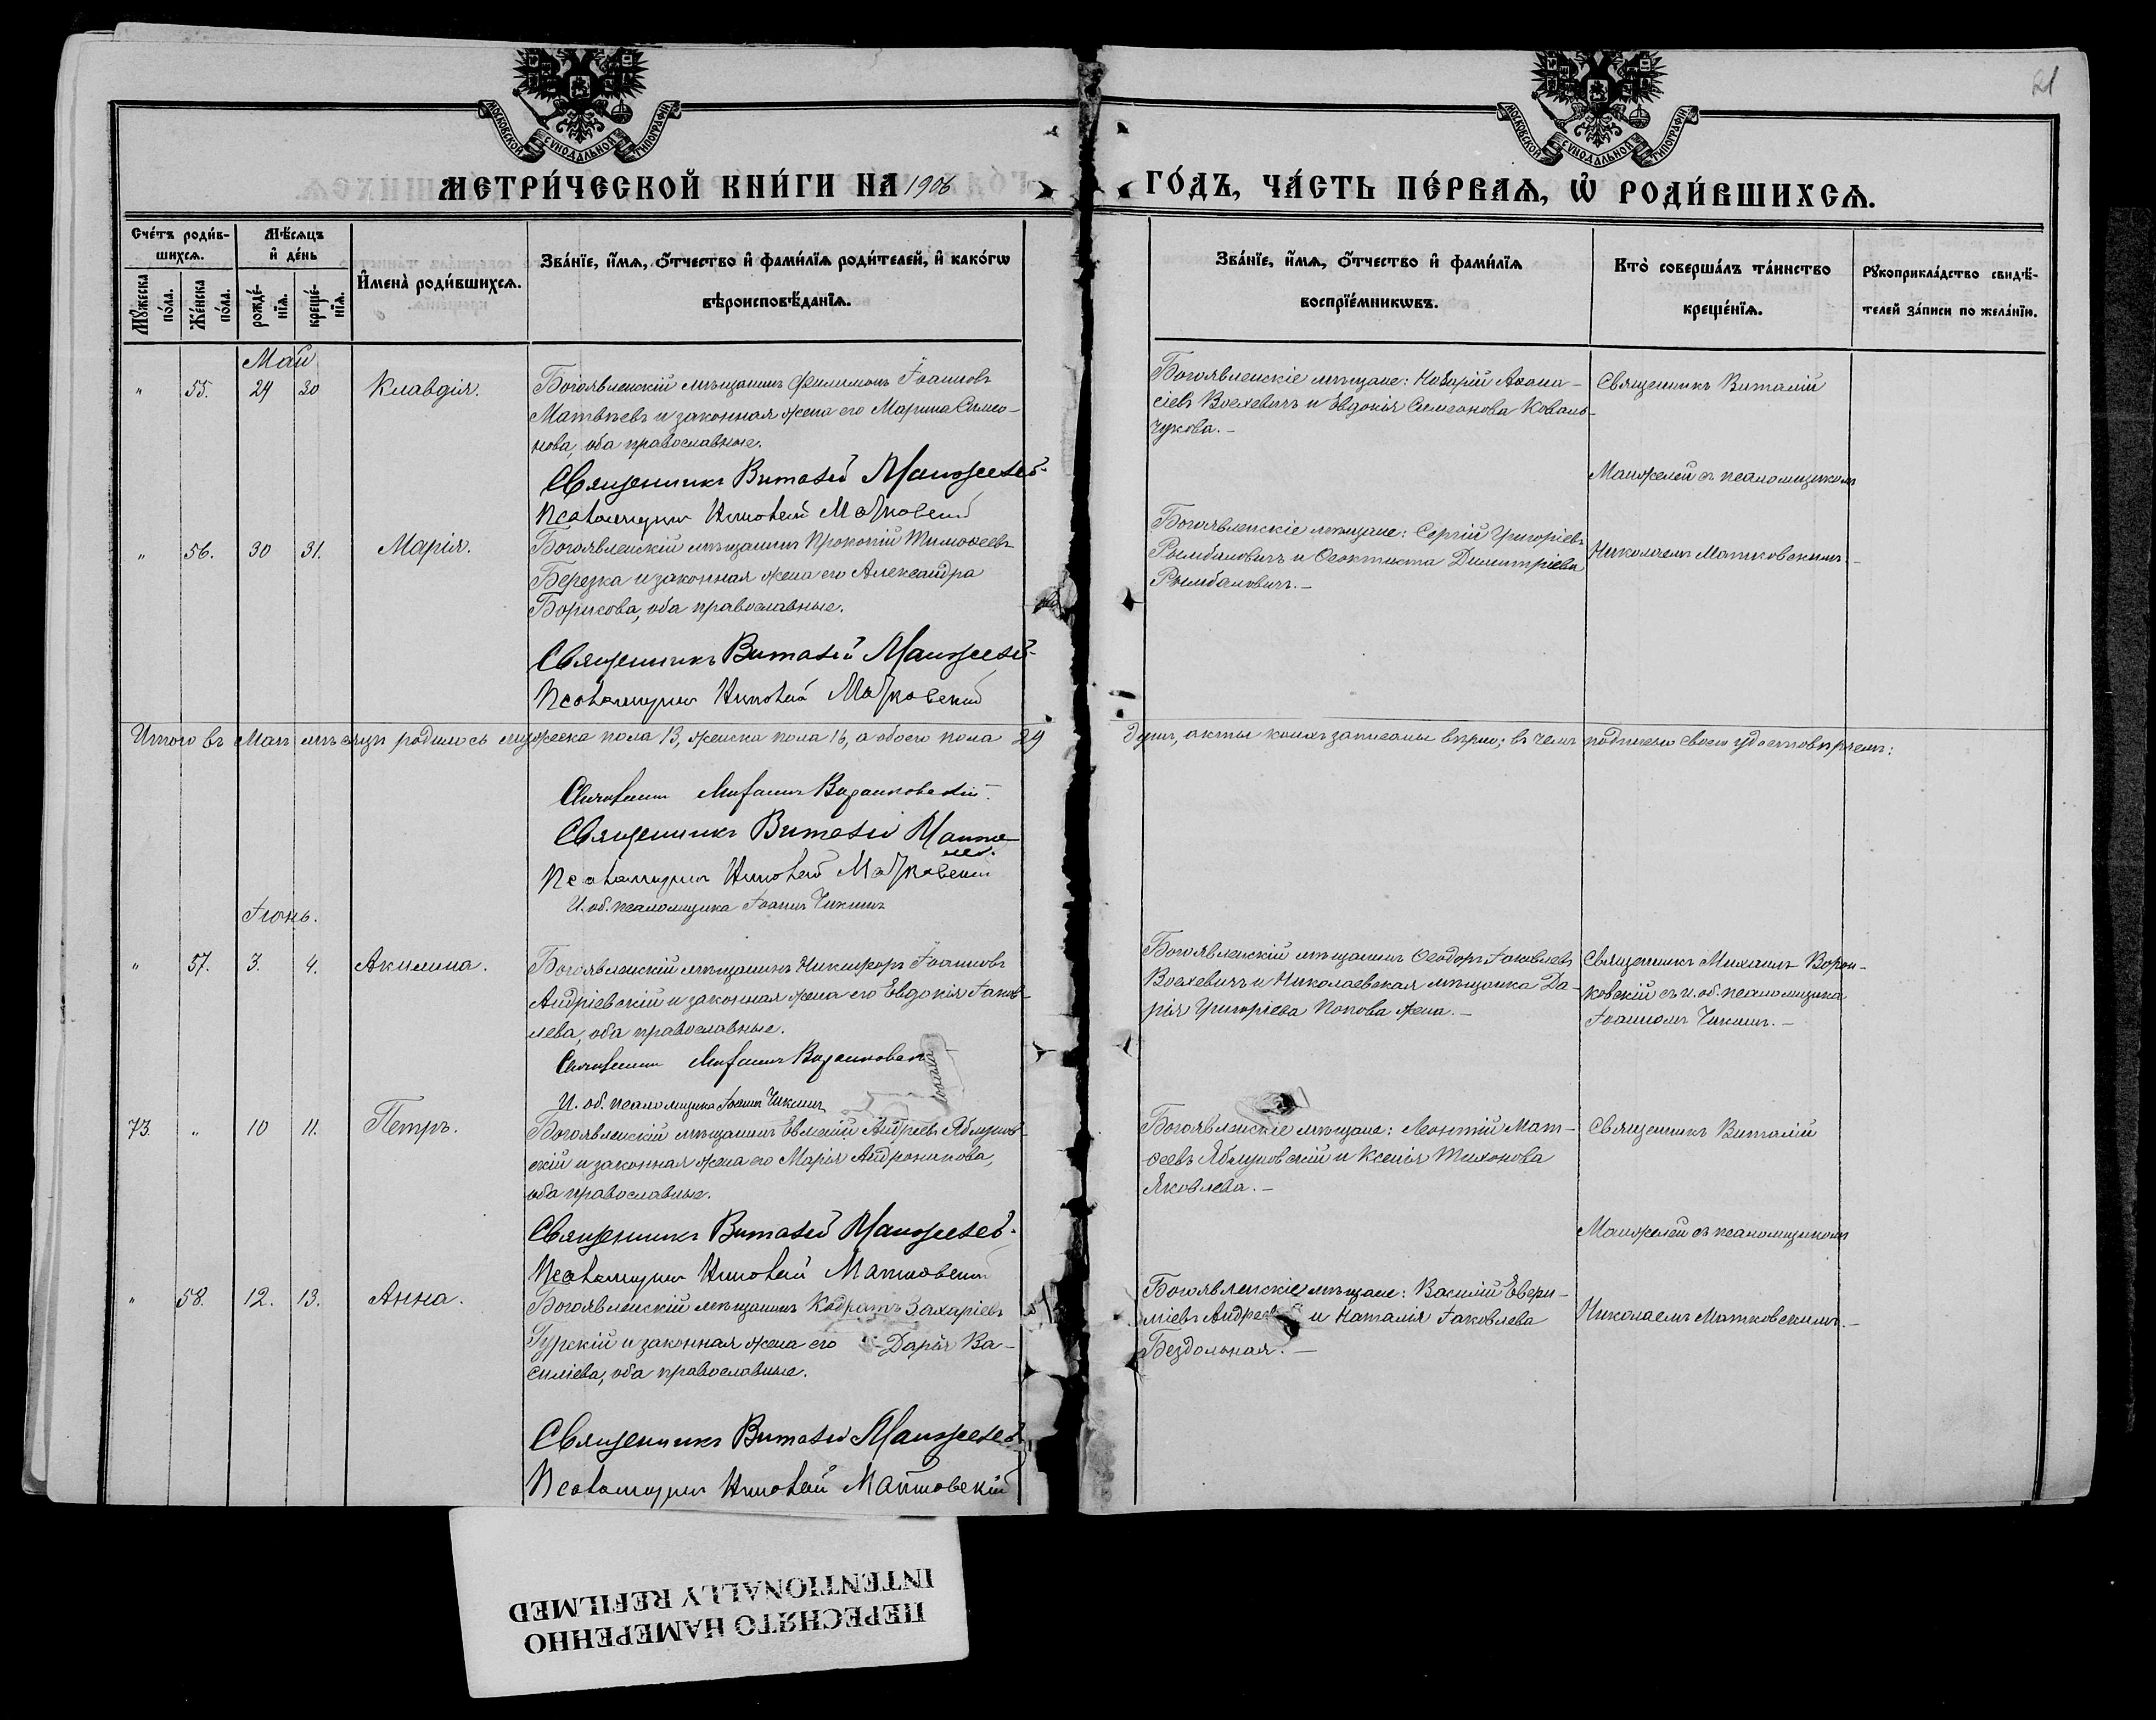 21
МОСКОВСКОЙ СѴНОДАЛЬНОЙ ТИПОГРАФІИ
МОСКОВСКОЙ СѴНОДАЛЬНОЙ ТИПОГРАФІИ
МЕТРИ́ЧЕСКОЙ КНИ́ГИ НА 1906 ГО́ДЪ, ЧА́СТЬ ПЕ́РВАѦ, Ѽ РОДИ́ВШИХСѦ.
Сче́тъ роди́в-
шихсѧ.
Мꙋ́жеска по́ла.
Же́нска по́ла.
Мѣ́сѧцъ
и҆ де́нь
рожде́-
нїѧ.
креще́-
нїѧ.
И҆мена̀ роди́вшихсѧ.
Зва́нїе, и҆́мѧ, ѻ҆́тчество и҆ фами́лїѧ роди́телей, и҆ како́гѡ
вѣроисповѣ́данїѧ.
Зва́нїе, и҆́мѧ, ѻ҆́тчество и҆ фами́лїѧ
воспрїе́мникѡвъ.
Кто̀ соверша́лъ та́инство
креще́нїѧ.
Рꙋкоприкла́дство свидѣ́-
телей за́писи по жела́нїю.
Май
" 55. 29 30 Клавдія.
Богоявленскій мѣщанинъ Филимонъ Іоанновъ
Матвѣевъ и законная жена его Марина Симео-
нова, оба православные.
Священникъ Виталій Манжелей.
Псаломщикъ Николай Матковскій
Богоявленскіе мѣщане: Назарій Аѳана-
сіевъ Воехевичъ и Евдокія Симеонова Коваль-
чукова.-
Священникъ Виталій
Манжелей съ псаломщикомъ
" 56. 30 31. Марія.
Богоявленскій мѣщанинъ Прокопій Тимоѳеевъ
Березка и законная жена его Александра
Борисова, оба православные.
Священникъ Виталій Манжелей.
Псаломщикъ Николай Матковскій
Богоявленскіе мѣщане: Сергій Григоріевъ
Рымбаловичъ и Ѳеоктиста Димитріева
Рымбаловичъ.-
Николаемъ Матковскимъ.-
Итого въ Маѣ мѣсяцѣ родилось мужеска пола 13, женска пола 16, а обоего пола 29 душъ, акты коихъ записаны вѣрно; въ чемъ подписью своею удостовѣряемъ:
Священникъ Михаилъ Воронковскій.
Священникъ Виталій Манже-
лей.
Псаломщикъ Николай Матковскій
И. об. псаломщика Іоаннъ Чикинъ
Іюнь.
" 57. 3. 4. Акилина.
Богоявленскій мѣщанинъ Никифоръ Іоанновъ
Андріевскій и законная жена его Евдокія Іаков-
лева, оба православные.
Священникъ Михаилъ Воронковскій
И. об. псаломщика Іоаннъ Чикинъ
Богоявленскій мѣщанинъ Ѳеодоръ Іаковлевъ
Воехевичъ и Николаевская мѣщанка Да-
рія Григоріева Попова жена.-
Священникъ Михаилъ Ворон-
ковскій съ и. об. псаломщика
Іоанномъ Чикинъ.-
73. " 10 11. Петръ.
Богоявленскій мѣщанинъ Евменій Андреевъ Яблунов-
скій и законная жена его Марія Андроникова,
оба православные.
Священникъ Виталій Манжелей.
Псаломщикъ Николай Матковскій
Богоявленскіе мѣщане: Леонтій Мат-
ѳеевъ Яблуновскій и Ксенія Тихонова
Яковлева.-
Священникъ Виталій
Манжелей съ псаломщикомъ
" 58. 12. 13. Анна.
Богоявленскій мѣщанинъ Кодратъ Захаріевъ
Гурскій и законная жена его Дарія Ва-
силіева, оба православные.
Священникъ Виталій Манжелей
Псаломщикъ Николай Матковскій
Богоявленскіе мѣщане: Василій Евѳи-
міевъ и Наталія Іаковлева
Бездольная.-
Николаемъ Матковскимъ.-
ПЕРЕСНЯТО НАМЕРЕННО
INTENTIONALLY REFILMED